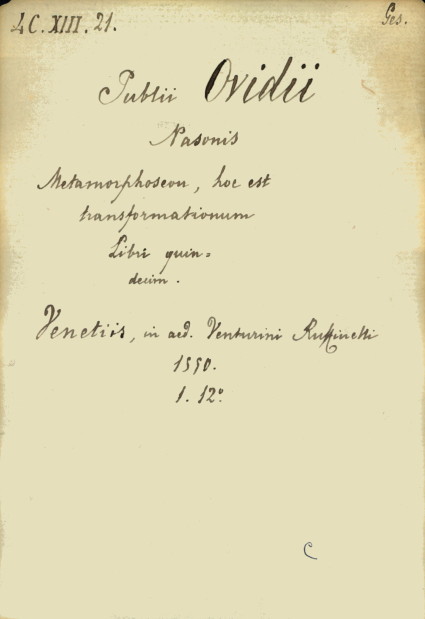 4 C. XIII. 21.
Ges.
Publii Ovidii
Nasonis
Metamorphoseon, hoc est
transformationum
Libri quin=
decim.
Venetiis, in aed. Venturini Ruffinelli
1550.
1. 12º.
C